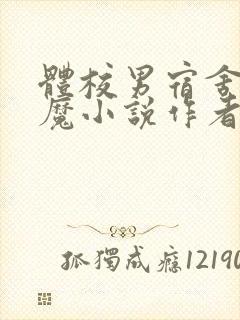 體校男宿舍
魔小說作者
孤獨成癮12190